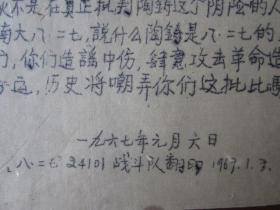 不是在真正批判陶铸这个阴险的人
南大八·二七,说什么陶铸是八·二七的
们,你们造謠中伤,肆意攻击革命造
远,历史将嘲弄你们这批
一九六七年元月六日
八·二七 24101 战斗队翻印 1967.1.3.